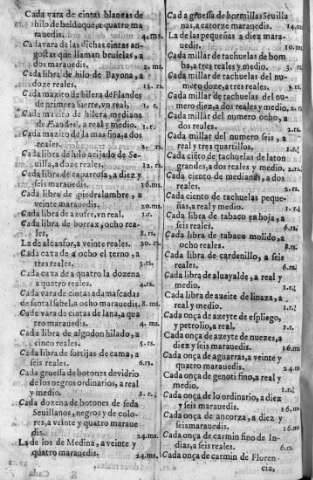 Cada vara de cintas blancas de
hilo de belduque, a quatro ma
rauedis. 4.ms.
Cada vara de las dichas cintas an-
gostas que llaman brujelas, a
dos marauedis. 2.ms.
Cada libra de hilo de Bayona, a
doze reales. 12.rs.
Cada maxito de hilera de Flandes
de primera suerte, vn real. 1.r.
Cada maxito de hilera mediana
de Flandes, a real y medio. 1.r.
Cada maxito de la mas fina, a dos
reales. 2.rs.
Cada libra de hilo de Se-
uilla, a doze reales. 12.rs.
Cada libra de caparrosa, a diez y
seis marauedis. 16.ms.
Cada libra de piedralumbre, a
veinte marauedis. 20.ms.
Cada libra de azufre, vn real. 1.r.
Cada libra de borrax, ocho rea-
les. 8.rs.
La de alcanfor, a veinte reales. 20.rs.
Cada caxa de a ocho el terno, a
tres reales. 3.rs.
Cada caxa de a quatro la dozena
a quatro reales. 4.rs.
Cada vara de cintas adamascadas
de santa Isabel, a ocho marauedis. 8.ms.
Cada vara de cintas de lana, a qua
tro marauedis. 4.ms.
Cada libra de algodon hilado, a
cinco reales. 5.rs.
Cada libra de sortijas de cama, a
seis reales. 6.rs.
Cada gruessa de botones de vidrio
de los negros ordinarios, a real
y medio.
Cada dozena de botones de seda
Seuillanos, negros y de colo-
res, a veinte y quatro maraue
dis. 24.ms.
La de los de Medina, a veinte y
quatro marauedis. 24.ms.
Cada
Cada gruessa de hormillas Seuilla
nas, a catorze marauedis. 14.ms.
La de las pequeñas a diez mara-
uedis. 10.ms.
Cada millar de tachuelas de bom
ba, a tres reales y medio. 3.rs.
Cada millar de tachuelas del nu-
mero doze, a tres reales. 3.rs.
Cada millar de tachuelas del nu-
mero diez, a dos reales y medio. 2.rs.
Cada millar del numero ocho, a
dos reales. 2.rs.
Cada millar del numero seis, a
real y tres quartillos. 1.r.
Cada ciẽto de tachuelas de laton
grandes, a dos reales y medio. 2.rs.
Cada ciento de medianas, a dos
reales. 2.rs.
Cada ciento de tachuelas peque-
ñas, a real y medio. 1.r.
Cada libra de tabaco en hoja, a
seis reales. 6.rs.
Cada libra de tabaco molido, a
ocho reales. 8.rs.
Cada libra de cardenillo, a seis
reales. 6.rs.
Cada libra de aluayalde, a real y
medio. 1.r.
Cada libra de azeite de linaza, a
real y medio. 1.r.
Cada onça de azeyte de espliego,
y petrolio, a real. 1.r.
Cada onça de azeyte de nuezes, a
diez y seis marauedis. 16.ms.
Cada onça de aguarras, a veinte y
quatro marauedis. 24.ms.
Cada onça de genoti fino, a real y
medio. 1.r.
Cada onça de lo ordinario, a diez
y seis marauedis. 16.ms.
Cada onça de ancorza, a diez y
seis marauedis. 16.ms.
Cada onça de carmin fino de In-
dias, a seis reales. 6.rs.
Cada onça de carmin de Floren-
cia,